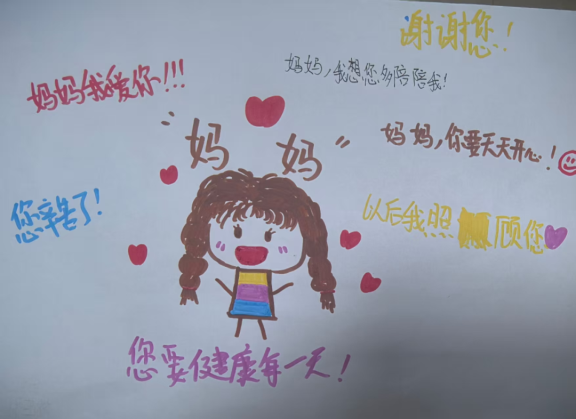 谢谢您！
妈妈，我想您多陪陪我！
妈妈我爱你!!!
"妈妈"
妈妈，你要天天开心！
您辛苦了！
以后我照顾您
您要健康每一天！